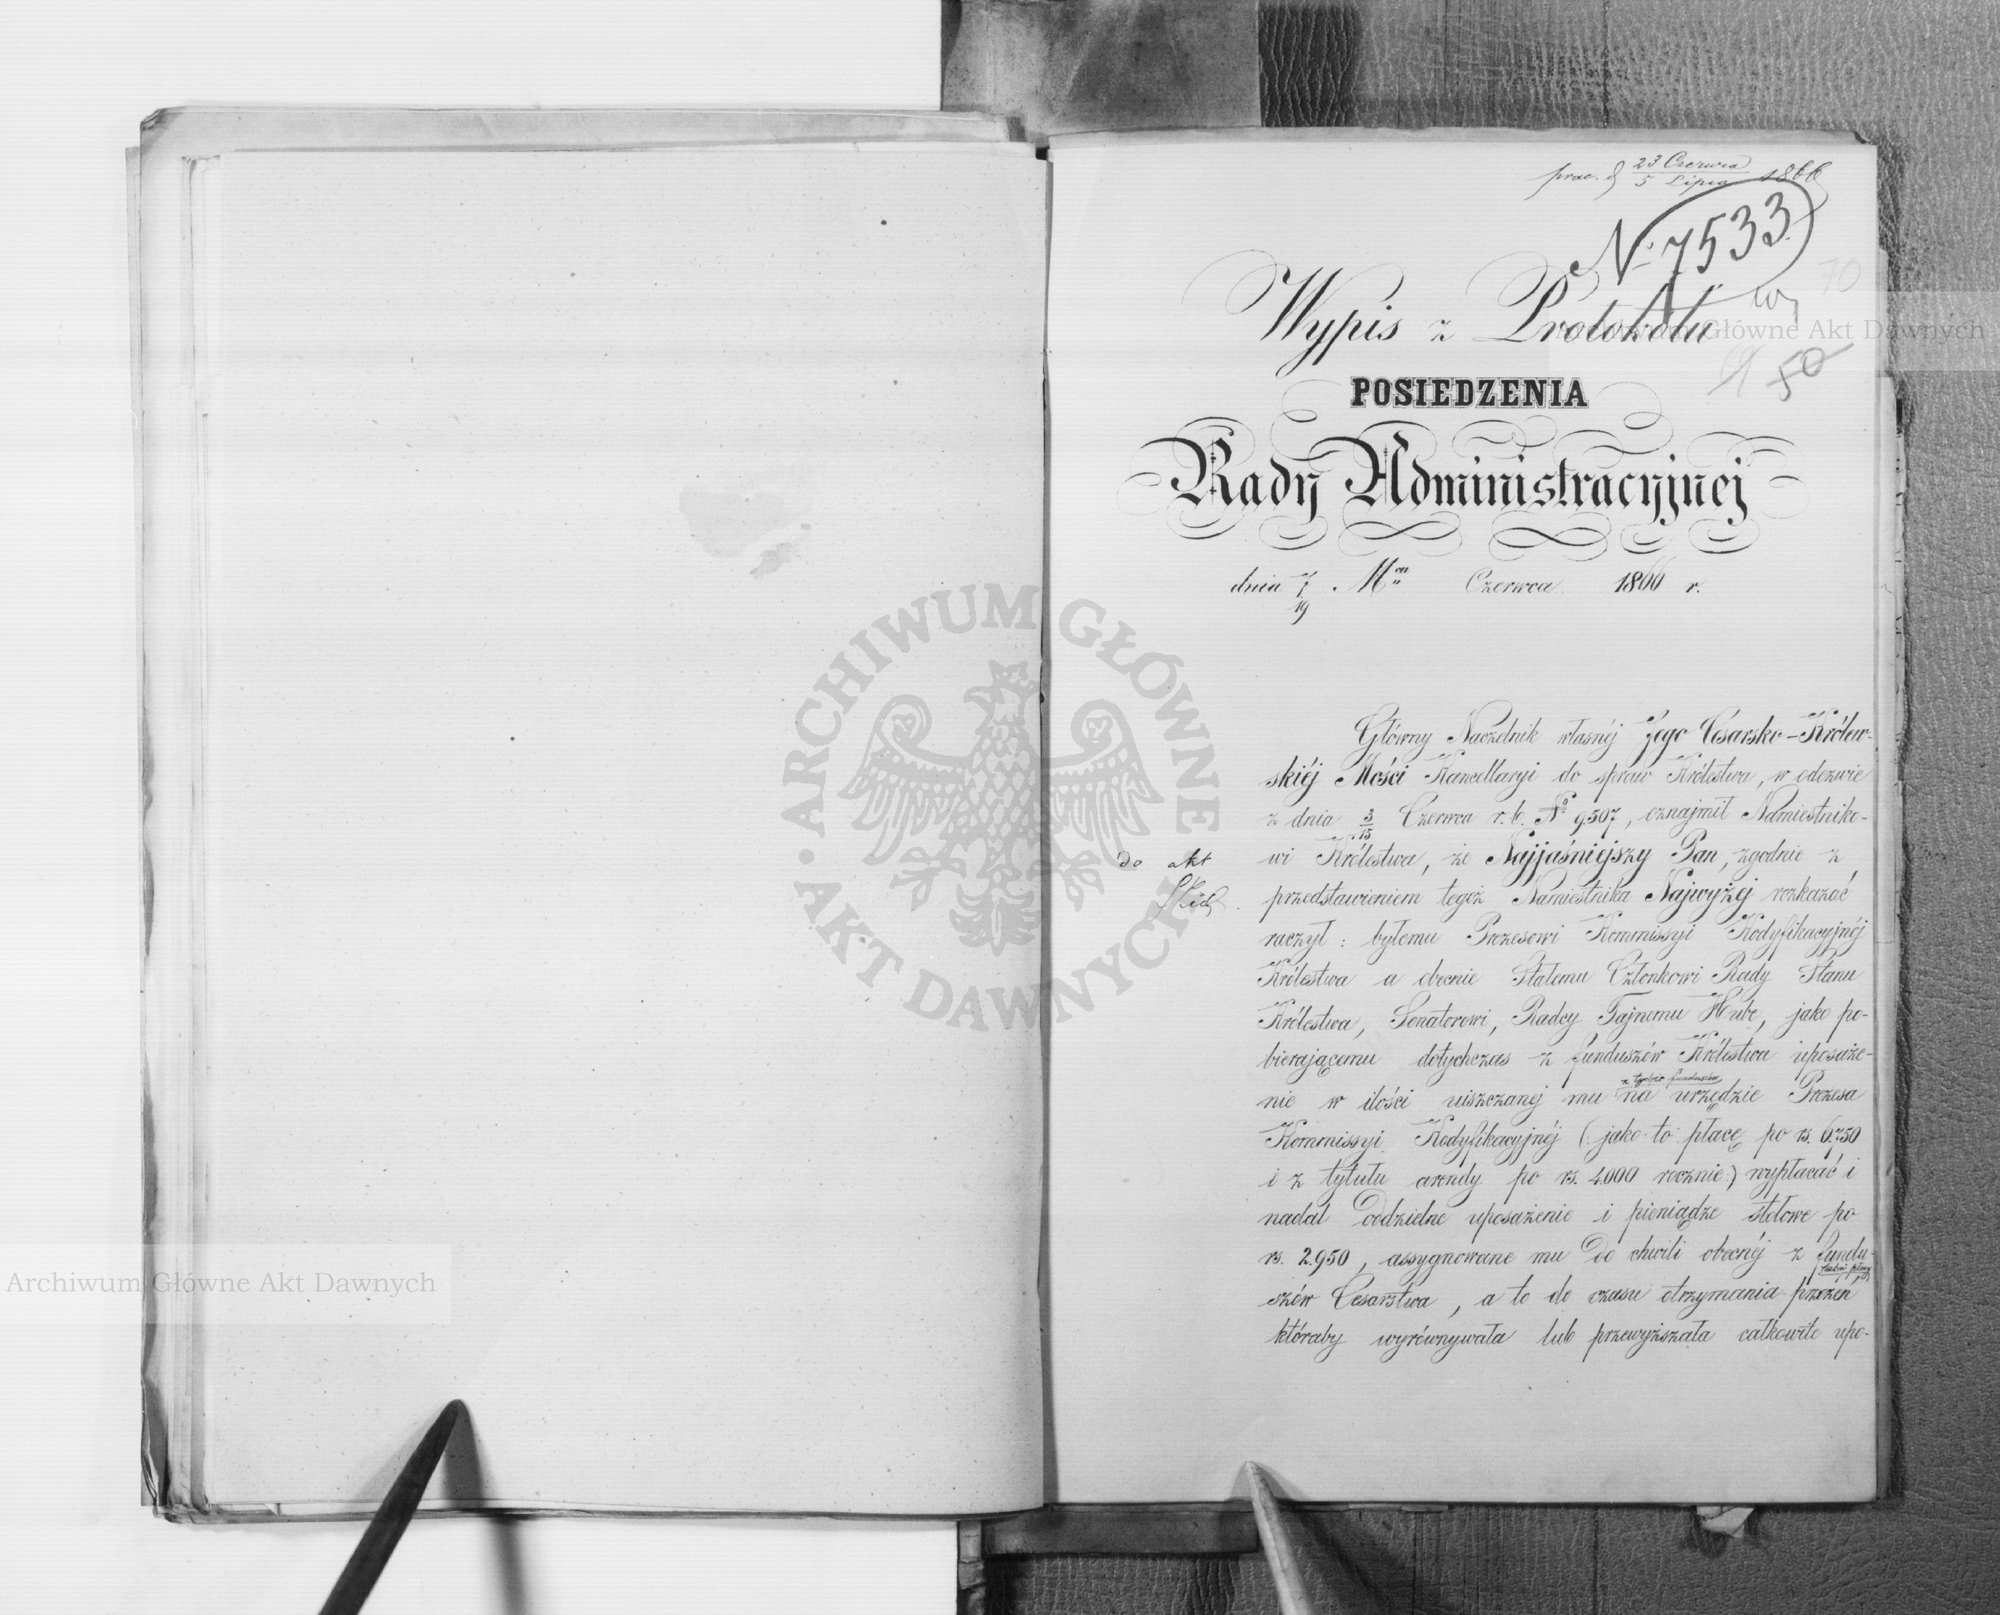 23 Czerwca
5 Lipca 1866
N 7533
70
50
Wypis z Protokółu
POSIEDZENIA
Rady Administracyjnej
dnia 7/19 Mca Czerwca 1866 r.
Główny Naczelnik własnéj Jego Cesarsko-Królew-
skiéj Mości Kancellaryi do spraw Królestwa, w odezwie
z dnia 3/15 Czerwca r. b. No 9507, oznajmił Namiestniko-
wi Królestwa, że Najjaśniejszy Pan, zgodnie z
do akt
przedstawieniem tegoż Namiestnika Najwyżej rozkazać
raczył: byłemu Prezesowi Kommissyi Kodyfikacyjnéj
Królestwa a obecnie Stałemu Członkowi Rady Stanu
Królestwa, Senatorowi, Radcy Tajnemu Hube, jako po-
bierającemu dotychczas z funduszów Królestwa uposaże-
z tychże funduszów
nie w ilości uiszczanéj mu na urzędzie Prezesa
Kommissyi Kodyfikacyjnéj (jako to: płacę po rs. 6.750
i z tytułu arendy po rs. 4.000 rocznie) wypłacać i
nadal oddzielne uposażenie i pieniądze stołowe po
rs. 2.950, assygnowane mu do chwili obecnéj z fundu-
takiéj płacy
szów Cesarstwa, a to do czasu otrzymania przezeń
któraby wyrównywała lub przewyższała całkowite upo-
ARCHIWUM GŁÓWNE AKT DAWNYCH
Archiwum Główne Akt Dawnych
Archiwum Główne Akt Dawnych